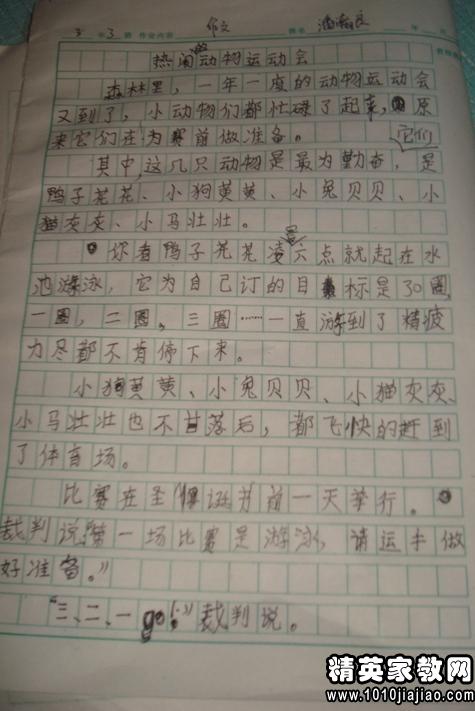 3 年 3 班 作业内容 作文 姓名 潘 年
热闹的动物运动会
森林里，一年一度的动物运动会
又到了，小动物们都忙碌了起来，原
来它们在为赛前做准备。
它们
其中，这几只动物是最为勤奋，是
鸭子花花、小狗黄黄、小兔贝贝、小
猫灰灰、小马壮壮。
你看鸭子花花凌晨六点就起在水
池游泳，它为自己订的目标是30圈，
一圈，二圈，三圈……一直游到了精疲
力尽都不肯停下来。
小狗黄黄、小兔贝贝、小猫灰灰、
小马壮壮也不甘落后，都飞快的赶到
了体育场。
比赛在圣诞节前一天举行。
裁判说“第一场比赛是游泳，请运手做
好准备。”
“三、二、一go！”裁判说。
精英家教网
www.1010jiajiao.com